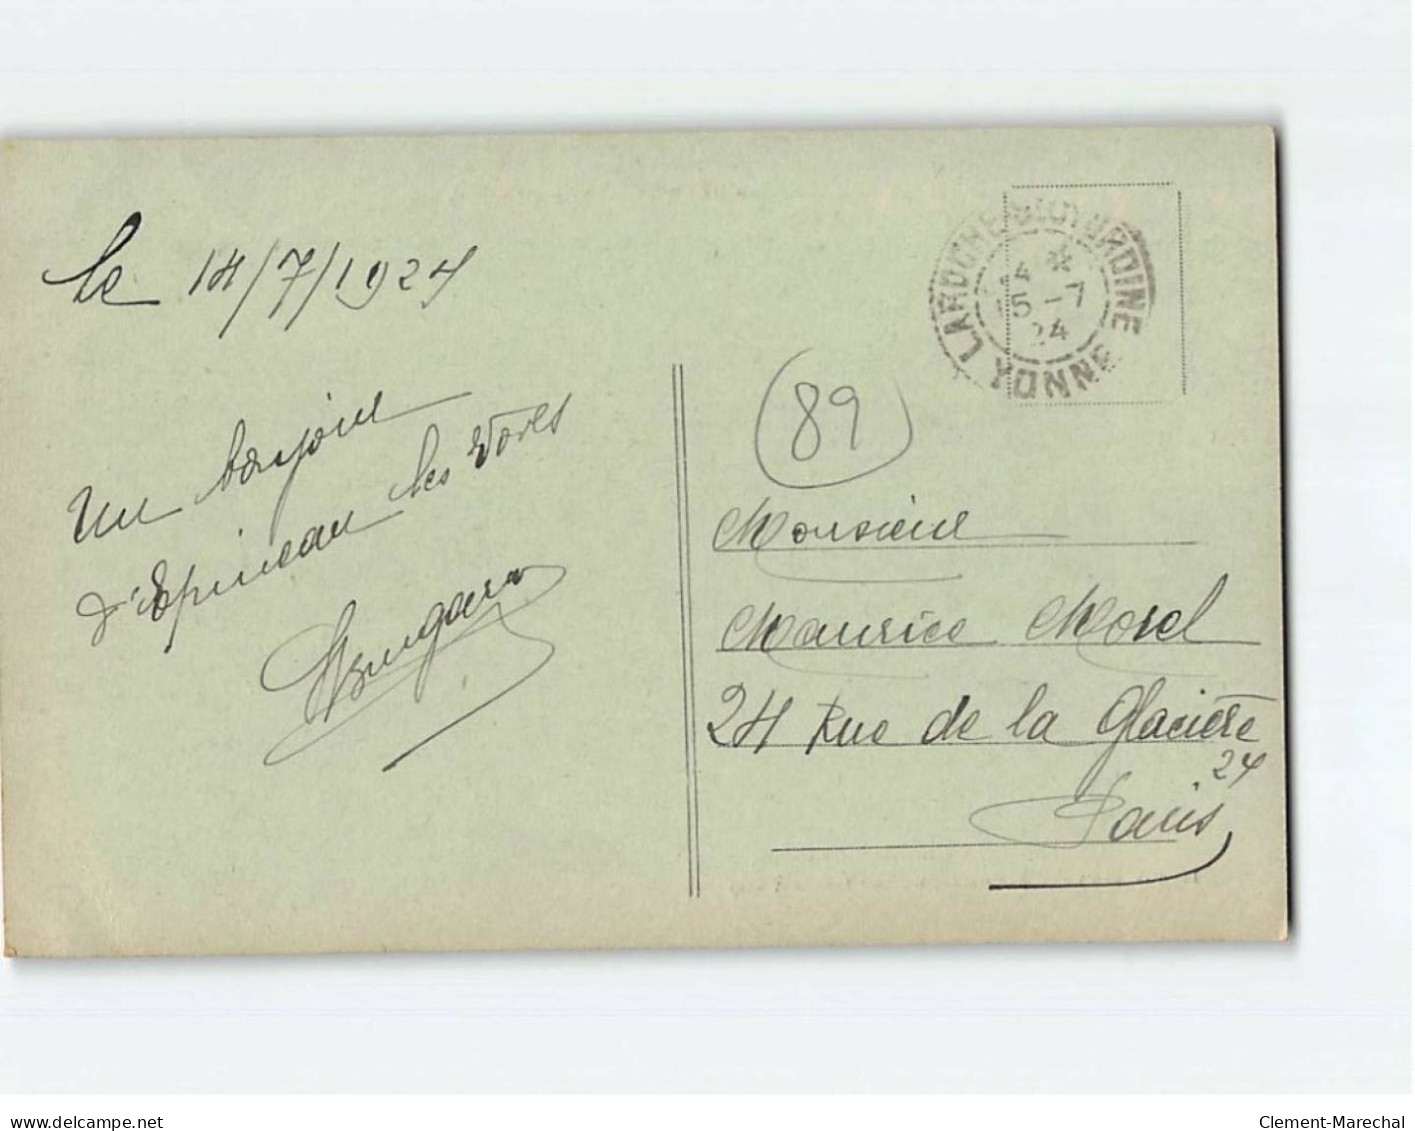 le 14/7/1924
Un bonjour
d'Epineau les Voves
LAROCHE-ST CYDROINE
*
15-7
24
YONNE
89
Monsieur
Maurice Morel
24 Rue de la Glacière
24
Paris
delcampe.net
Clement-Marechal